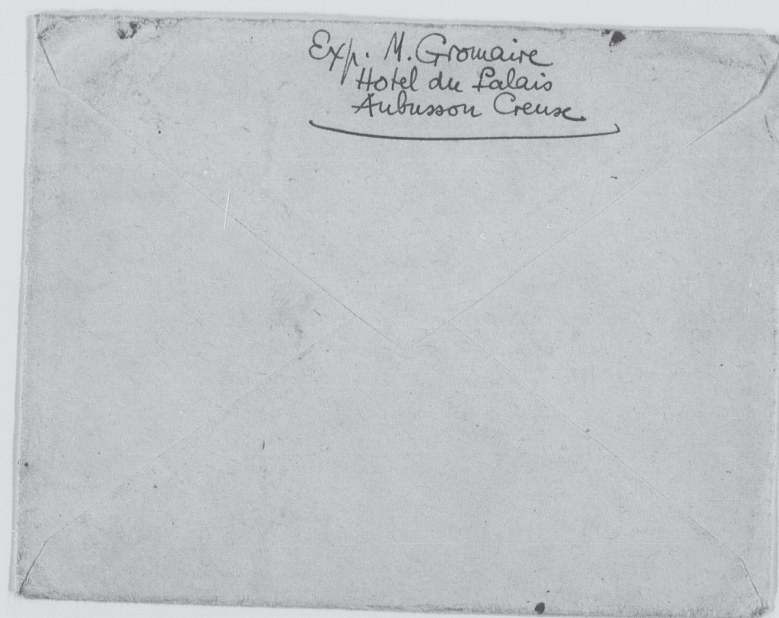 Exp. M. Gromaire
Hotel du Palais
Aubusson Creuse